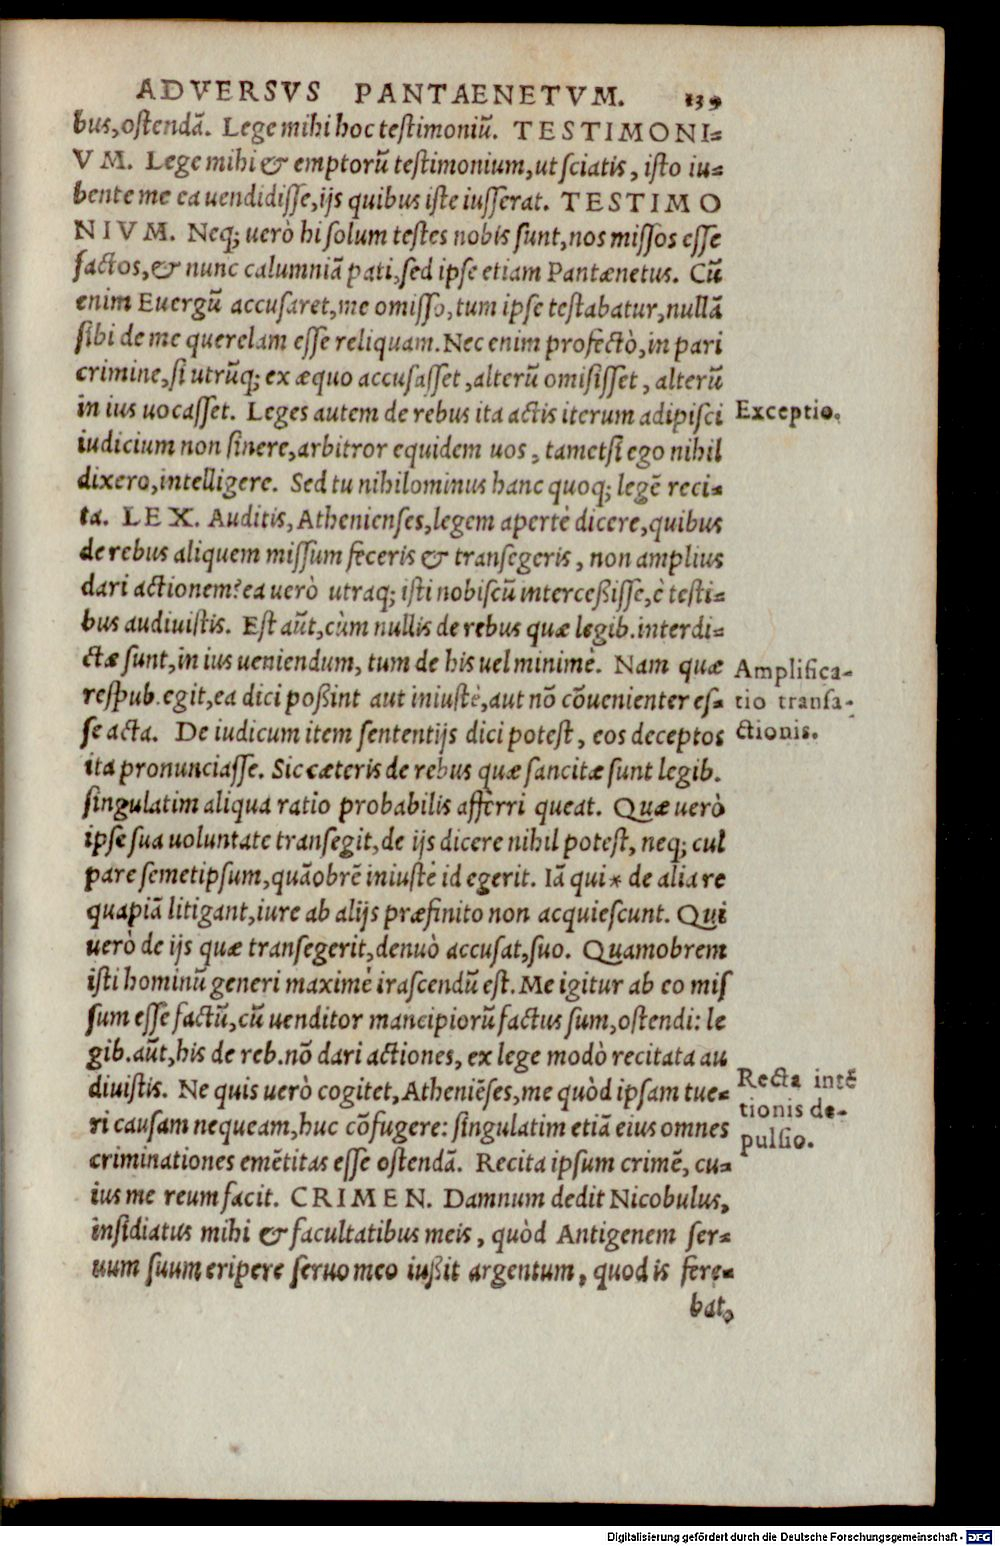 ADVERSVS PANTAENETVM. 139
bus, ostendā. Lege mihi hoc testimoniū. TESTIMONI-
VM. Lege mihi & emptorū testimonium, ut sciatis, isto iu-
bente me ea uendidisse, ijs quibus iste iusserat. TESTIMO
NIVM. Neq; uerò hi solum testes nobis sunt, nos missos esse
factos, & nunc calumniā pati, sed ipse etiam Pantænetus. Cū
enim Euergū accusaret, me omisso, tum ipse testabatur, nullā
sibi de me querelam esse reliquam. Nec enim profectò, in pari
crimine, si utrūq; ex æquo accusasset, alterū omisisset, alterū
in ius uocasset. Leges autem de rebus ita actis iterum adipisci
Exceptio.
iudicium non sinere, arbitror equidem uos, tametsi ego nihil
dixero, intelligere. Sed tu nihilominus hanc quoq; legē reci-
ta. LEX. Auditis, Athenienses, legem apertè dicere, quibus
de rebus aliquem missum feceris & transegeris, non amplius
dari actionem? ea uerò utraq; isti nobiscū interceßisse, è testi-
bus audiuistis. Est aūt, cùm nullis de rebus quæ legib. interdi-
ctæ sunt, in ius ueniendum, tum de his uel minimè. Nam quæ
Amplifica-
respub. egit, ea dici poßint aut iniustè, aut nō cōuenienter es-
tio transa-
se acta. De iudicum item sententijs dici potest, eos deceptos
ctionis.
ita pronunciasse. Sic cæteris de rebus quæ sancitæ sunt legib.
singulatim aliqua ratio probabilis afferri queat. Quæ uerò
ipse sua uoluntate transegit, de ijs dicere nihil potest, neq; cul
pare semetipsum, quāobrē iniustè id egerit. Iā qui * de alia re
quapiā litigant, iure ab alijs præfinito non acquiescunt. Qui
uerò de ijs quæ transegerit, denuò accusat, suo. Quamobrem
isti hominū generi maximè irascendū est. Me igitur ab eo mis
sum esse factū, cū uenditor mancipiorū factus sum, ostendi: le
gib. aūt, his de reb. nō dari actiones, ex lege modò recitata au
diuistis. Ne quis uerò cogitet, Atheniēses, me quòd ipsam tue-
Recta intē
tionis de-
ri causam nequeam, huc cōfugere: singulatim etiā eius omnes
pulsio.
criminationes emētitas esse ostendā. Recita ipsum crimē, cu-
ius me reum facit. CRIMEN. Damnum dedit Nicobulus,
insidiatus mihi & facultatibus meis, quòd Antigenem ser-
uum suum eripere seruo meo iußit argentum, quod is fere-
bat,
Digitalisierung gefördert durch die Deutsche Forschungsgemeinschaft - DFG